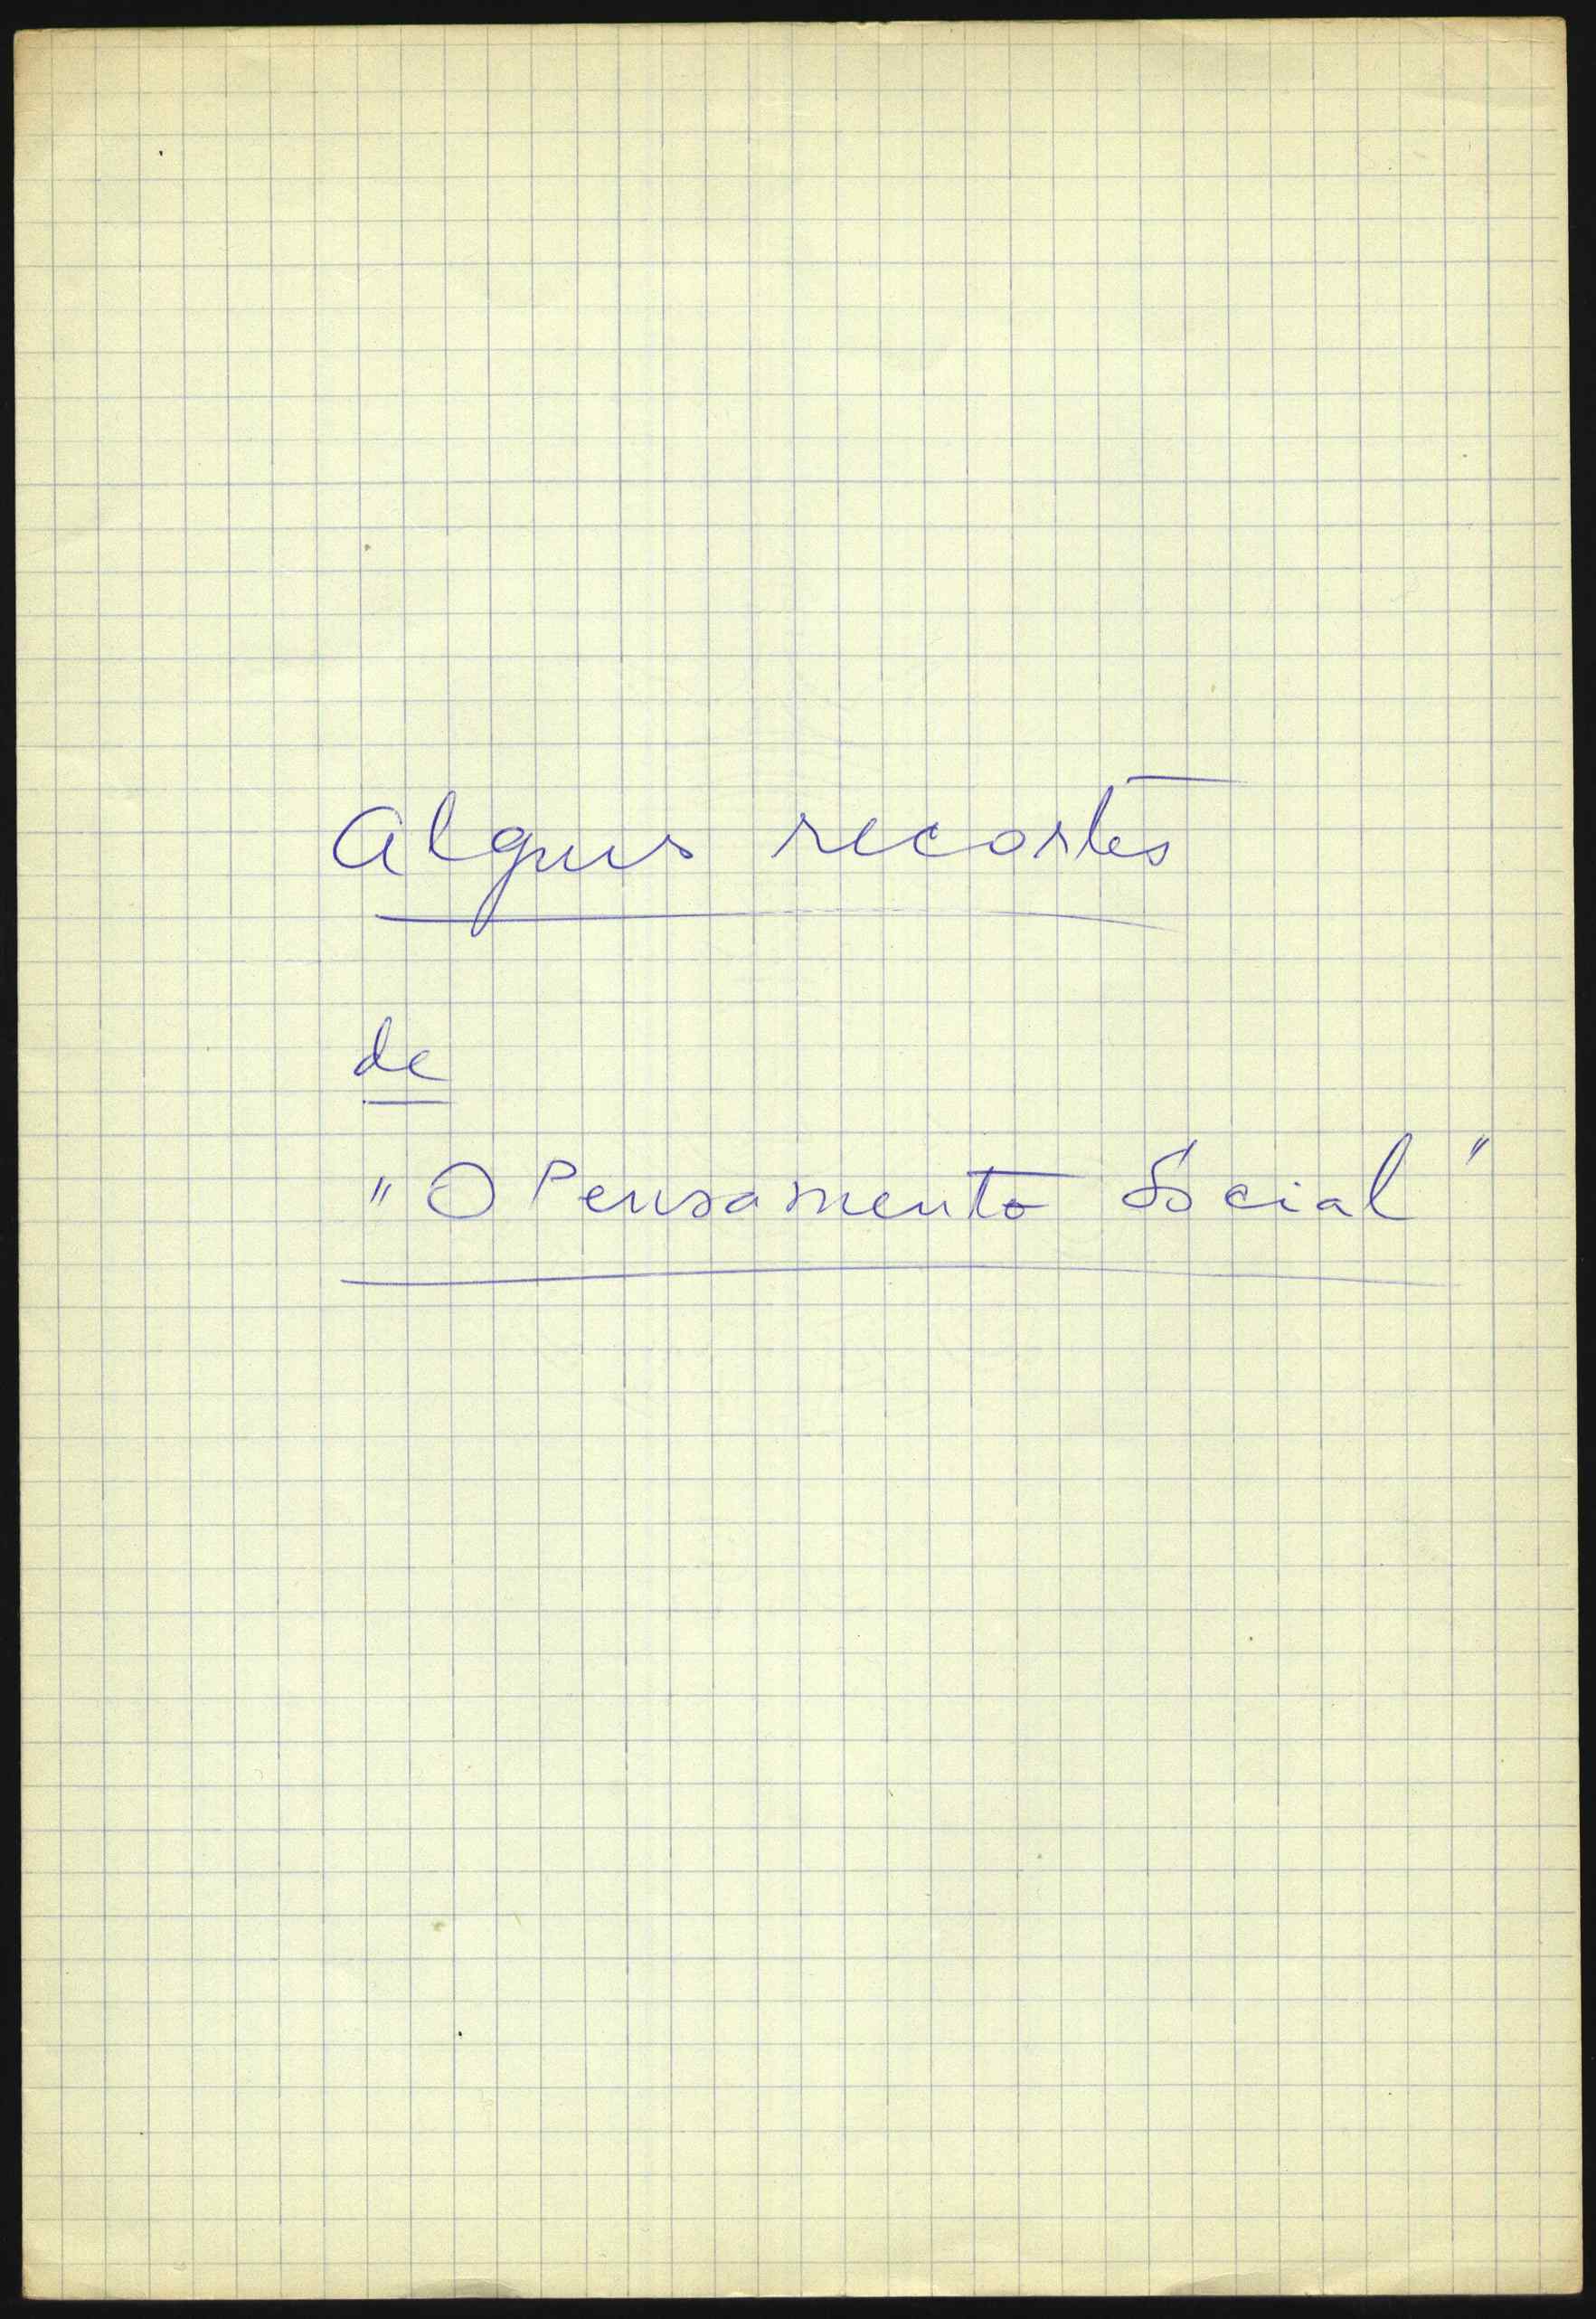 Alguns recortes
de
"O Pensamento Social"